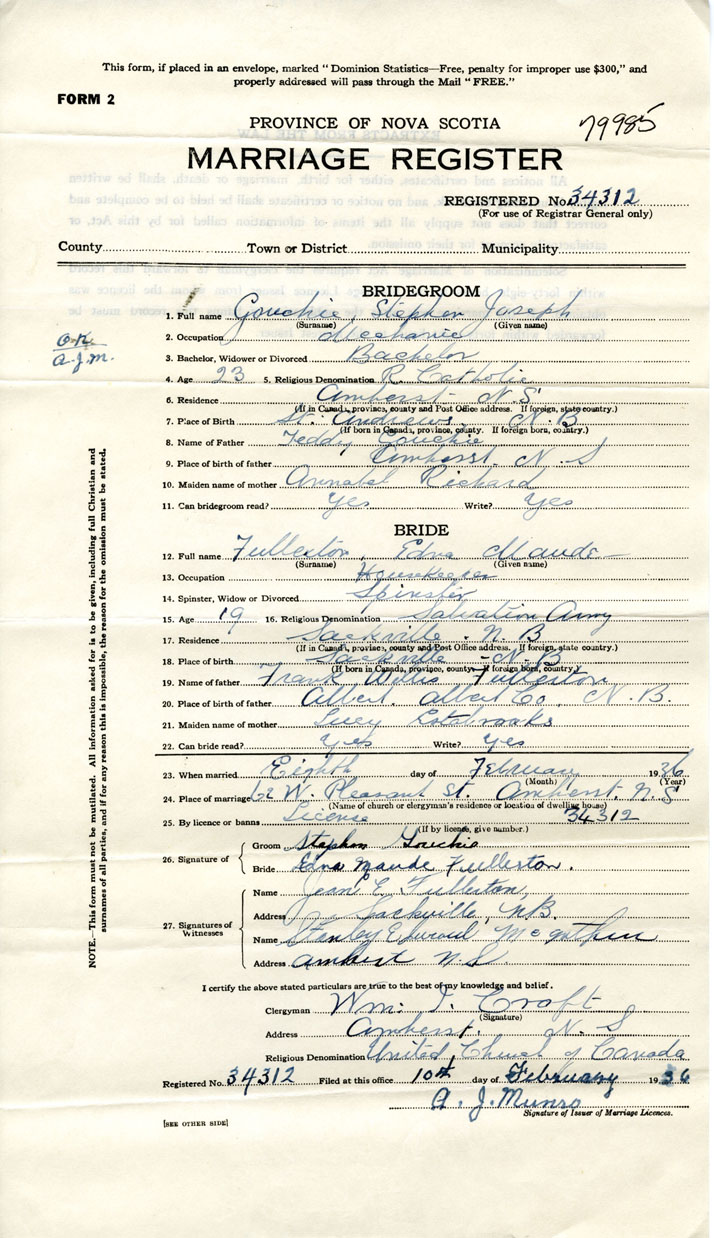 This form, if placed in an envelope, marked "Dominion Statistics—Free, penalty for improper use $300," and
properly addressed will pass through the Mail "FREE."
FORM 2
PROVINCE OF NOVA SCOTIA
79985
MARRIAGE REGISTER
REGISTERED No. 34312
(For use of Registrar General only)
County Town or District Municipality
BRIDEGROOM
1. Full name Gouchie, Stephen Joseph
(Surname) (Given name)
2. Occupation Mechanic
O.K.
A.J.M.
3. Bachelor, Widower or Divorced Bachelor
4. Age 23 5. Religious Denomination R. Catholic
6. Residence Amherst N.S
(If in Canada, province, county and Post Office address. If foreign, state country.)
7. Place of Birth St. Andrews, N.B
(If born in Canada, province, county. If foreign born, country.)
8. Name of Father Teddy Gouchie
9. Place of birth of father Amherst N.S
10. Maiden name of mother Annabel Richard
11. Can bridegroom read? Yes Write? Yes
BRIDE
12. Full name Fullerton, Edna Maude
(Surname) (Given name)
13. Occupation Housekeeper
14. Spinster, Widow or Divorced Spinster
15. Age 19 16. Religious Denomination Salvation Army
17. Residence Sackville. N.B
(If in Canada, province, county and Post Office address. If foreign, state country.)
18. Place of birth Sackville - N.B
(If born in Canada, province, county—If foreign born, country.)
19. Name of father Frank Willis Fullerton
20. Place of birth of father Albert, Albert Co, N.B.
21. Maiden name of mother Lucy Estabrooks
22. Can bride read? Yes Write? Yes
23. When married Eighth day of February 1936
(Month) (Year)
24. Place of marriage 62 W. Pleasant St. Amherst, N.S
(Name of church or clergyman's residence or location of dwelling house)
25. By licence or banns License 34312
(If by licence, give number.)
26. Signature of
Groom Stephen Gouchie
Bride Edna Maude Fullerton.
27. Signatures of
Witnesses
Name Jean E. Fullerton,
Address Sackville, N.B.
Name Stanley Edward
Address Amherst N.S.
I certify the above stated particulars are true to the best of my knowledge and belief.
Clergyman Wm. I. Croft
(Signature)
Address Amherst, N.S
Religious Denomination United Church of Canada
Registered No. 34312 Filed at this office 10th day of February 1936
A. J. Munro
Signature of Issuer of Marriage Licences.
[SEE OTHER SIDE]
NOTE.—This form must not be mutilated. All information asked for is to be given, including full Christian and
surnames of all parties, and if for any reason this is impossible, the reason for the omission must be stated.